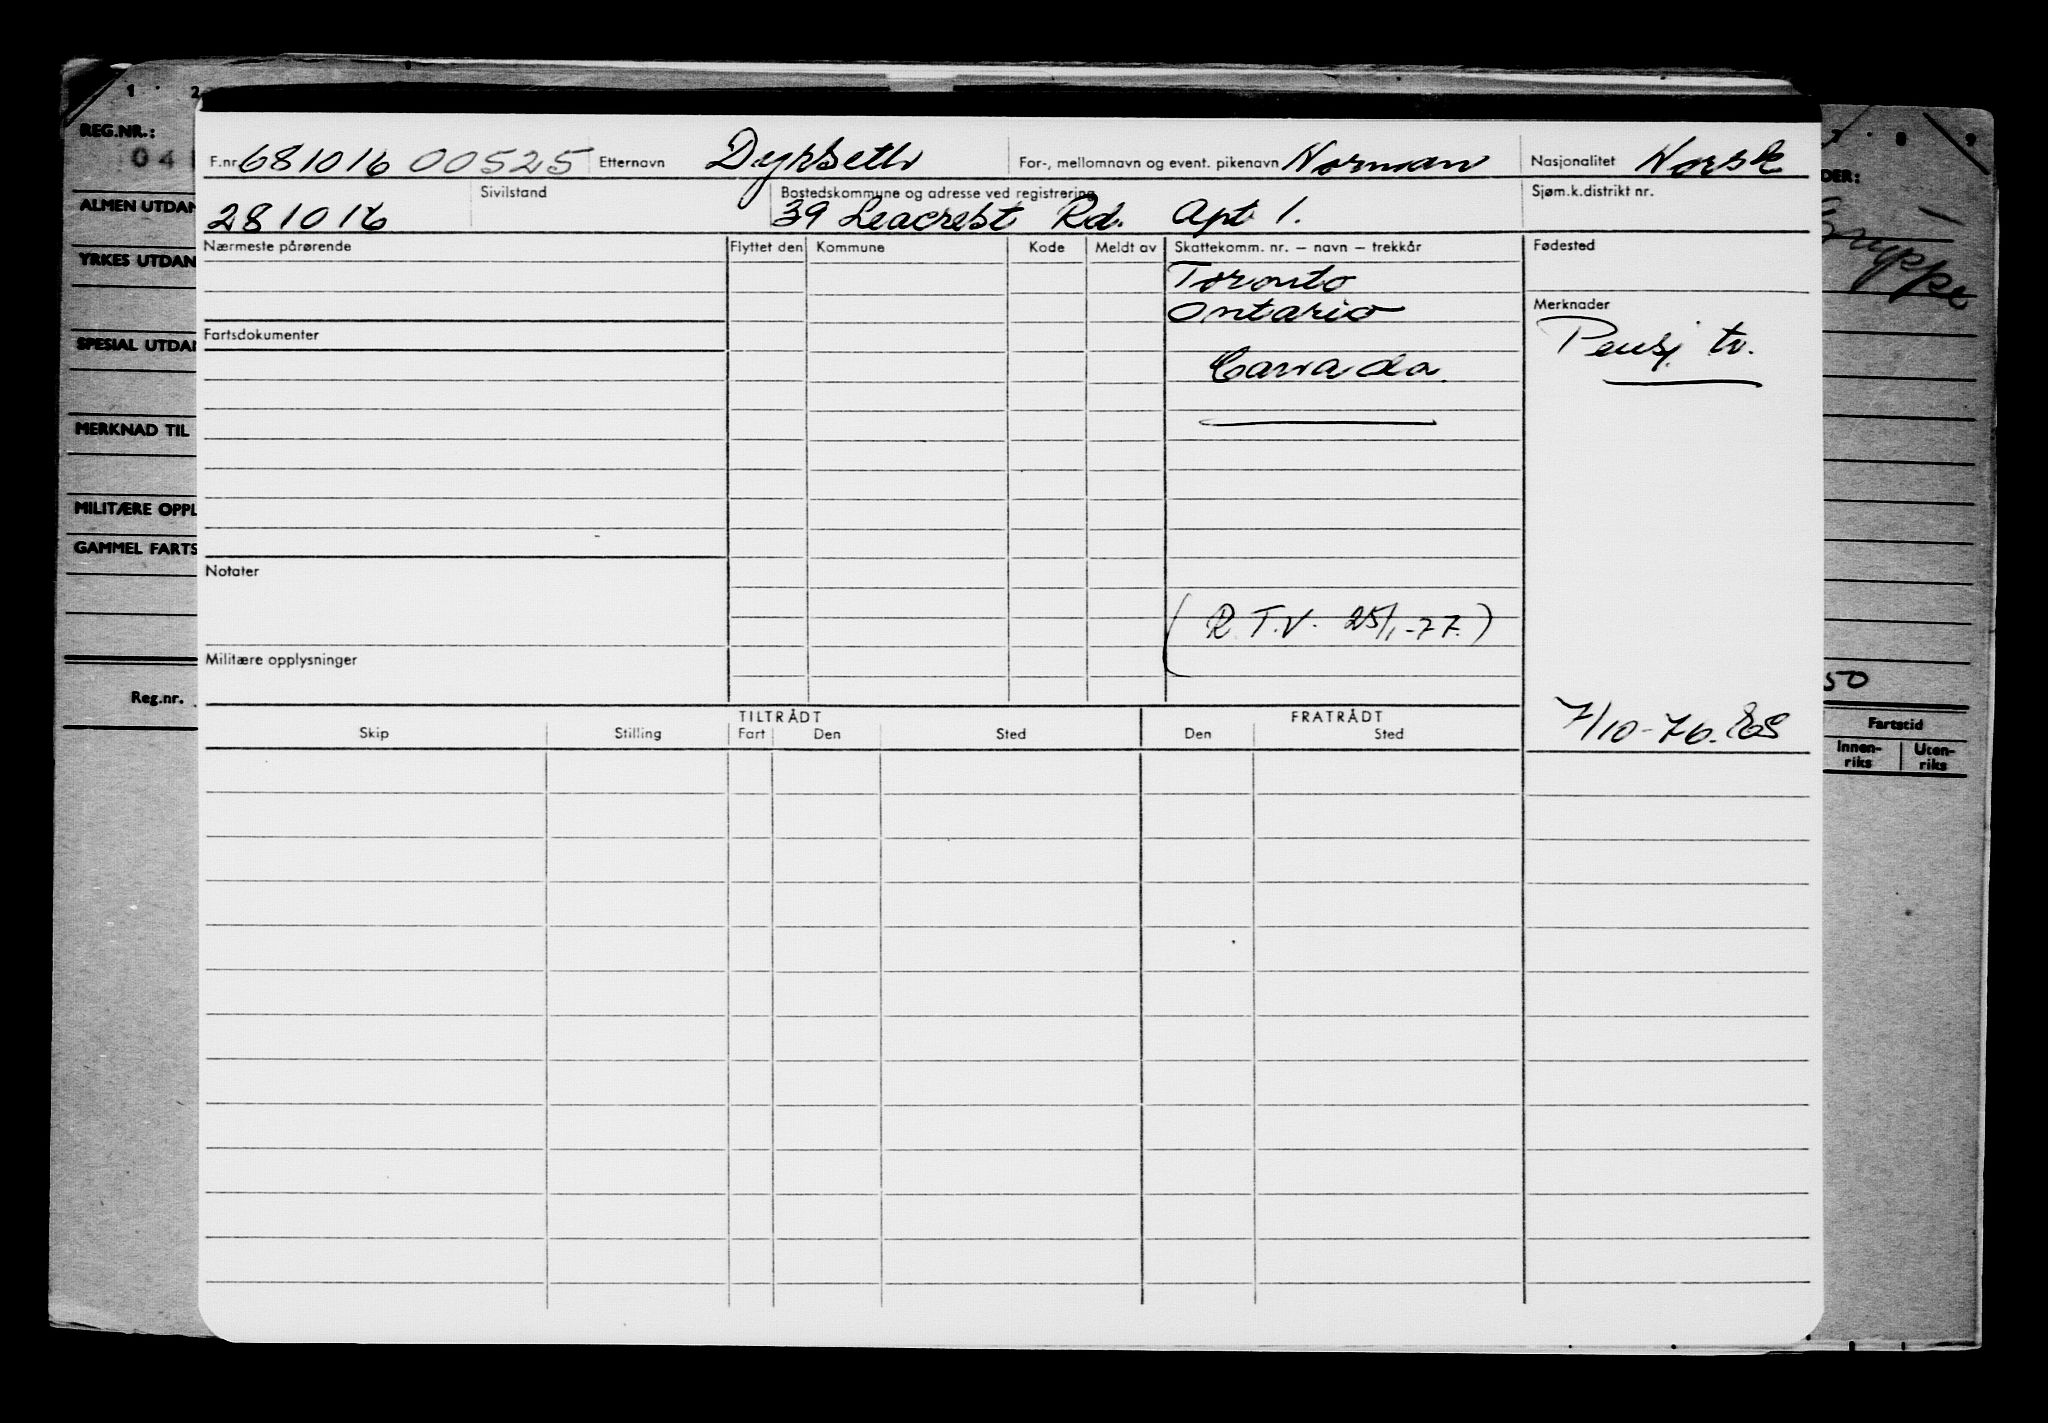 1 · 2
8 9
REG.NR.:
04
F.nr. 681016 00525 Etternavn Dyrseth For-, mellomnavn og event. pikenavn Norman Nasjonalitet Norsk
DER:
ALMEN UTDAN
281016 Sivilstand Bostedskommune og adresse ved registrering 39 Leacrest Rd. Apt 1. Sjøm.k.distrikt nr.
Gruppe
Nærmeste pårørende Flyttet den Kommune Kode Meldt av Skattekomm. nr. – navn – trekkår Fødested
YRKES UTDAN
Toronto
Ontario
Merknader
Pensj tv.
SPESIAL UTDAN
Fartsdokumenter
Canada.
MERKNAD TIL
MILITÆRE OPPL
GAMMEL FARTS
Notater
(R.T.V. 25/1-77.)
Militære opplysninger
50
Reg.nr.
7/10-76. EGS
TILTRÅDT FRATRÅDT
Skip Stilling Fart Den Sted Den Sted
Fartstid
Innen-riks Uten-riks